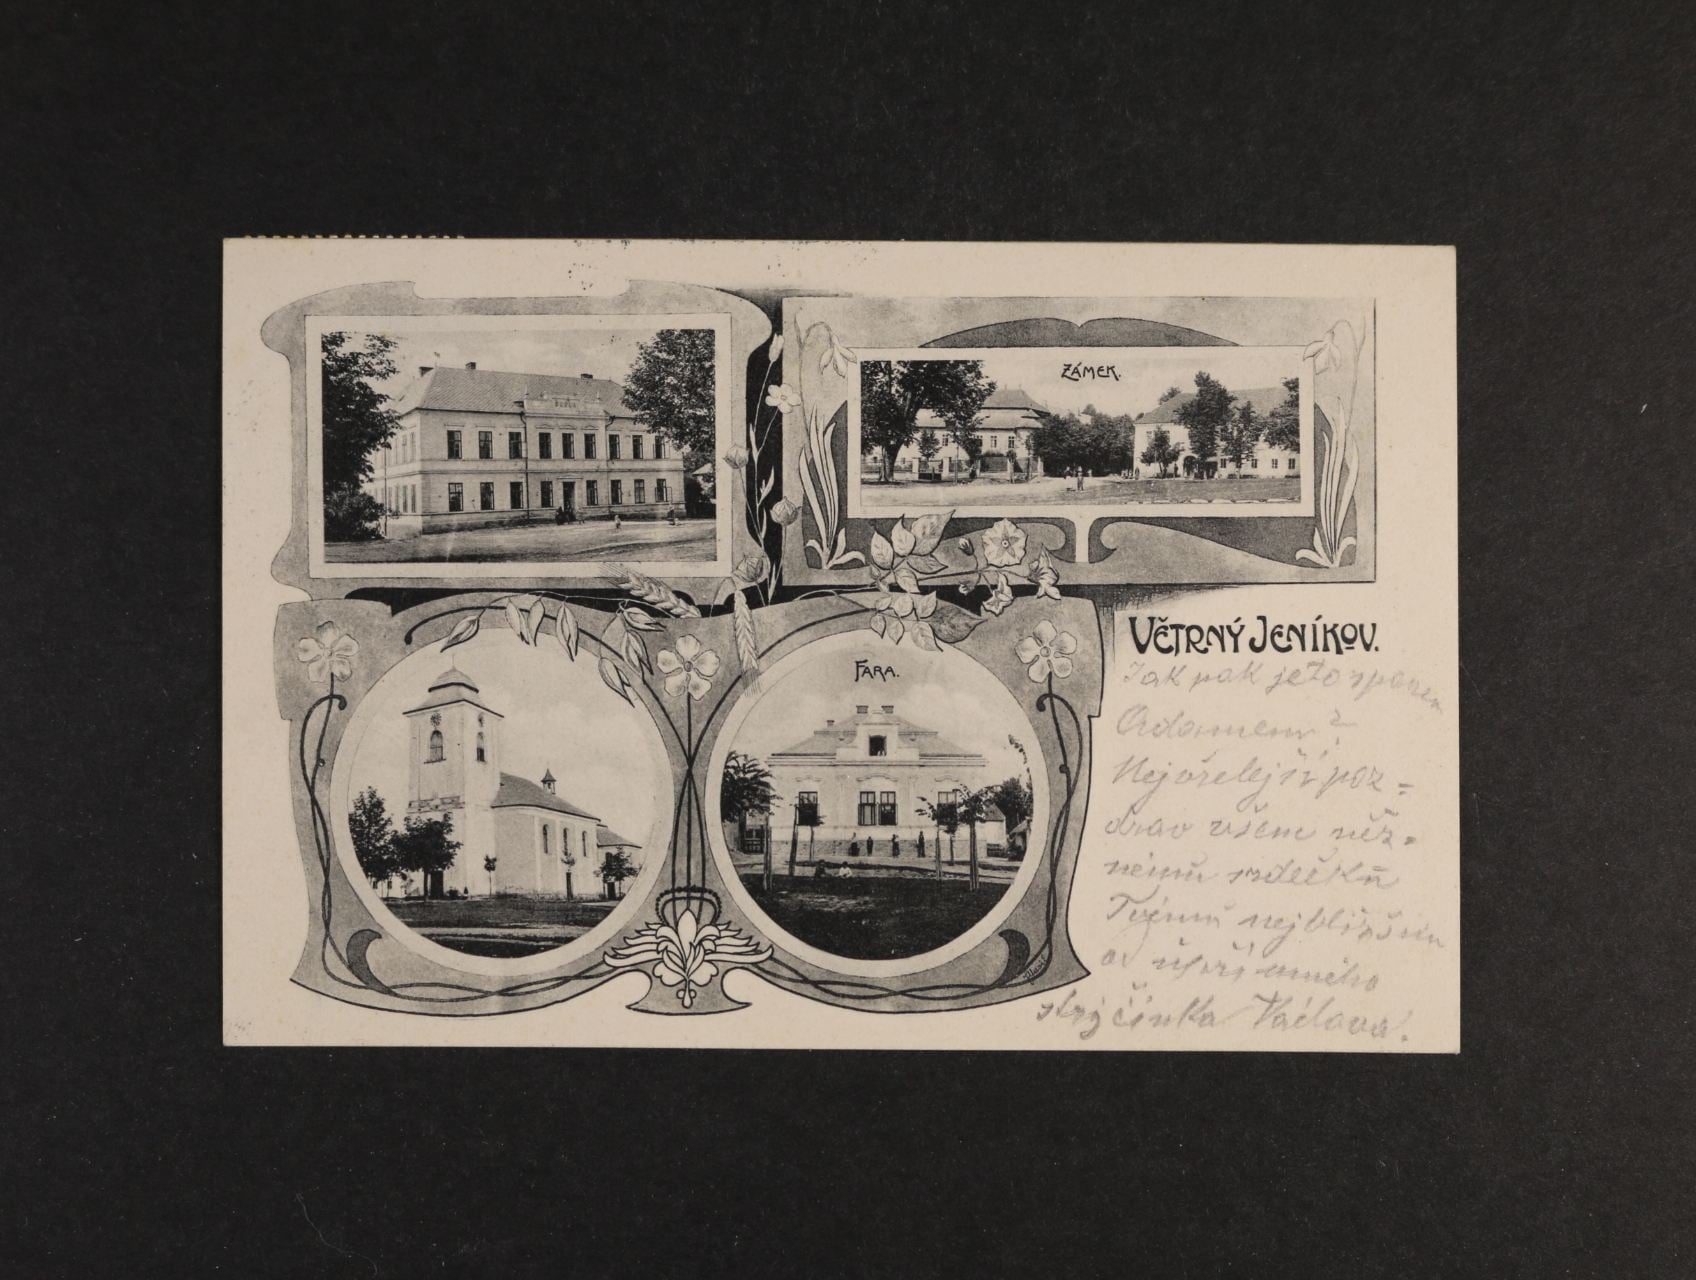 ZÁMEK.
FARA.
VĚTRNÝ JENÍKOV.
Jak pak je to s panem
Adamem?
Nejvřelejší poz=
drav všem něž=
nému srdečku
Tvému nejbližším
od upřímného
strýčinka Václava.